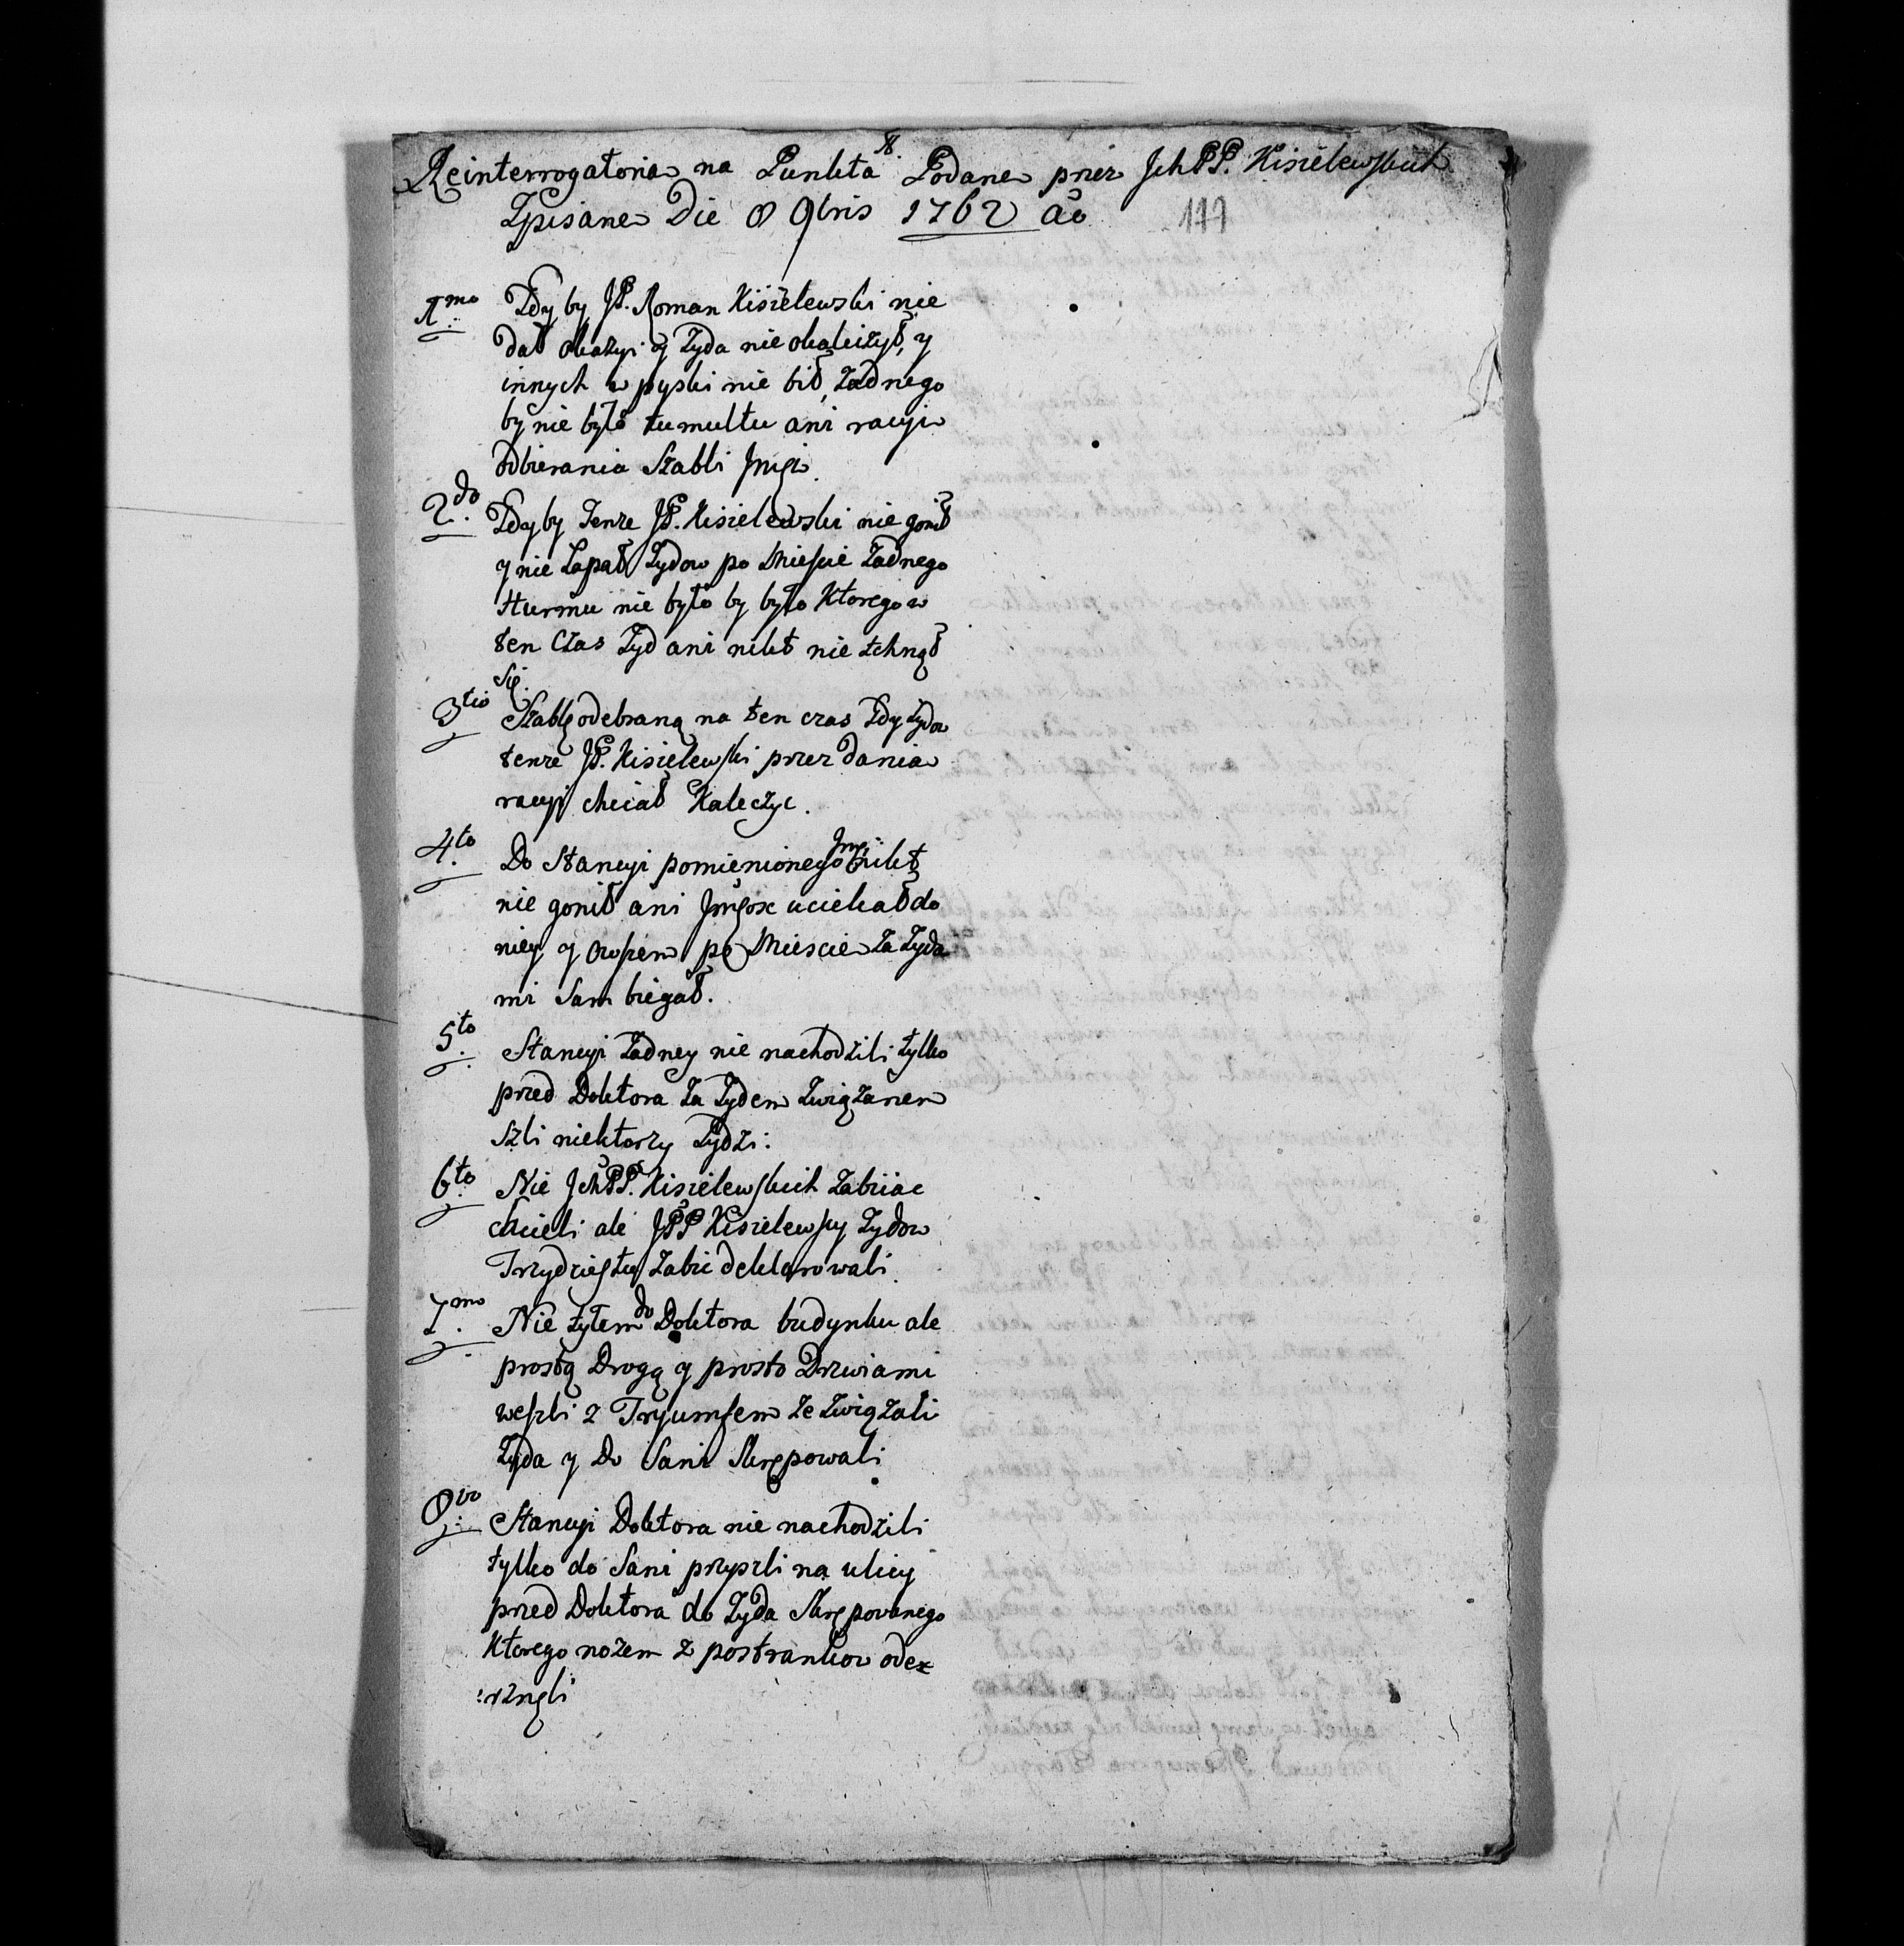 Reinterrogatoria na Punkta 8. Podane przez JchPP. Kisielewskich
Spisane Die 8 9bris 1762 ao
177
1mo Gdy by JP. Roman Kisielewski nie
dał okazyi y Zyda nie okaliczył, y
innych w pyski nie bił, zadnego
by nie było tumultu ani racyi
odbierania Szabli
2do. Gdy by Tenze JP. Kisielewski nie gonił
y nie Łapał Zydow po Mieście Zadnego
Hurmu nie było by było Ktorego w
ten Czas Zyd ani nikt nie tchnął
Się.
3tio Szablę odebraną na ten czas Gdy Zyda
tenze JP. Kisielewski przez dania
racyi chciał Kaleczyc.
4to. Do Stancyi pomienionego Jmci nikt
nie gonił ani Jmść uciekał do
niey y owszem po Miescie Za Zyda
mi Sam biegał.
5to. Stancyi Zadney nie nachodzili tylko
przed Doktora Za Zydem Związanem
Szli niektorzy Zydzi.
6to Nie JchPP. Kisielewskich Zabiiac
chcieli ale JPP Kisielewscy Zydow
Trzydziestu Zabic deklarowali.
7mo. Nie tyłem do Doktora budynku ale
prostą Drogą y prosto Drzwiami
weszli z Tryumfem Ze Związali
Zyda y Do Sani Skrępowali
8vo. Stancyi Doktora nie nachodzili
tylko do Sani przyszli na ulicy
przed Doktora do Zyda Skrępowanego
Ktorego nozem z postrankow ode
rznęli